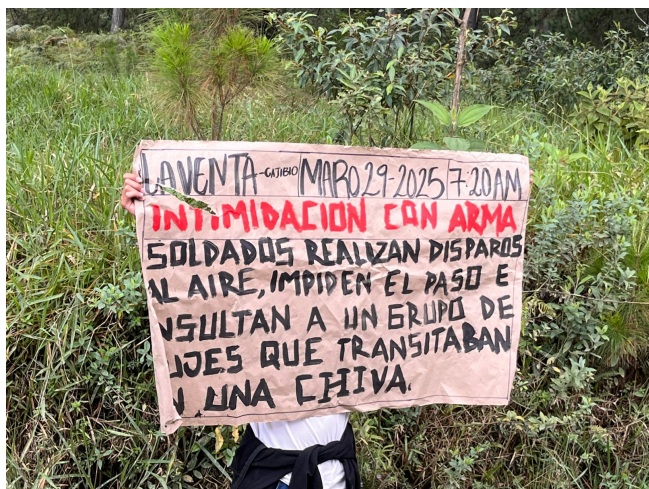 LA VENTA -CAJIBIO MARO.29-2025 7:20AM
INTIMIDACION CON ARMA
SOLDADOS REALIZAN DISPAROS
AL AIRE, IMPIDEN EL PASO E
NSULTAN A UN GRUPO DE
QUE TRANSITABAN
UNA CHIVA.